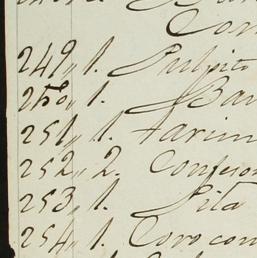 Con
249,, 1. Pulpito
250,, 1. Ban
251,, 1. Tarim
252,, 2. Confeson
253,, 1. Pila
254,, 1. Coro con